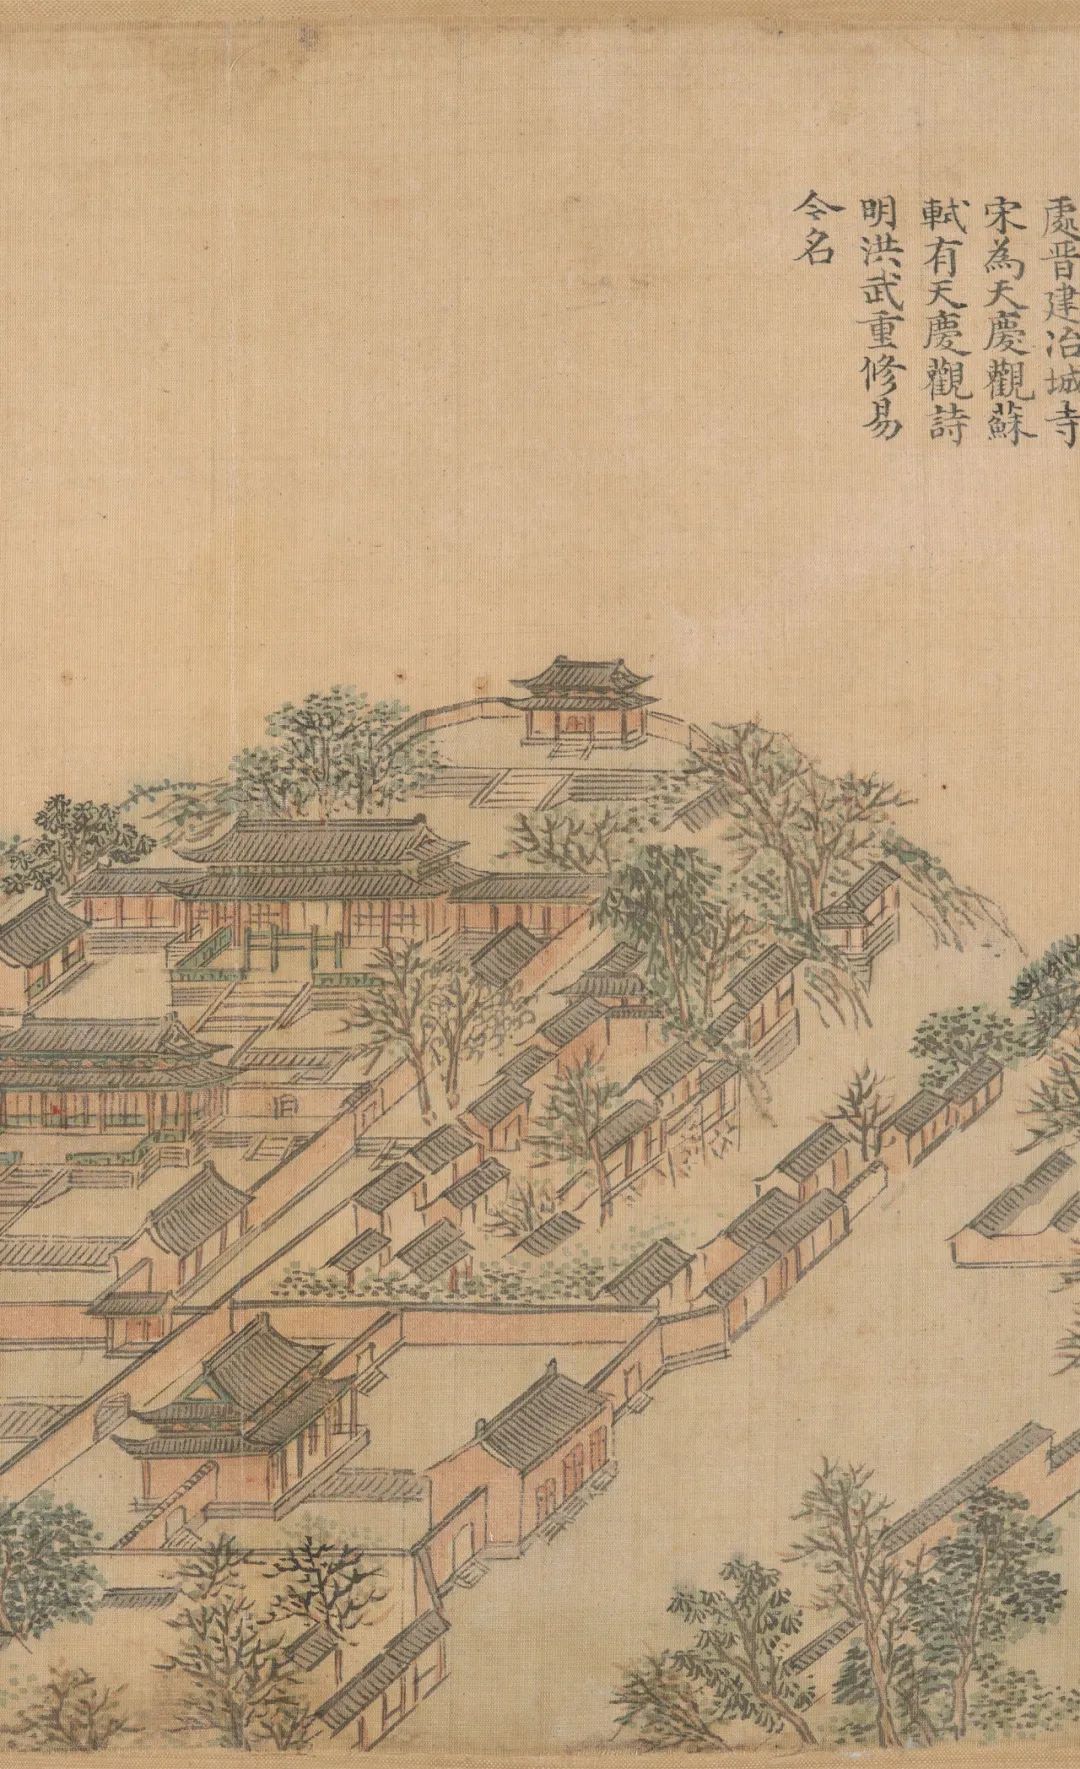 處晉建冶城寺
宋為天慶觀蘇
軾有天慶觀詩
明洪武重修易
今名